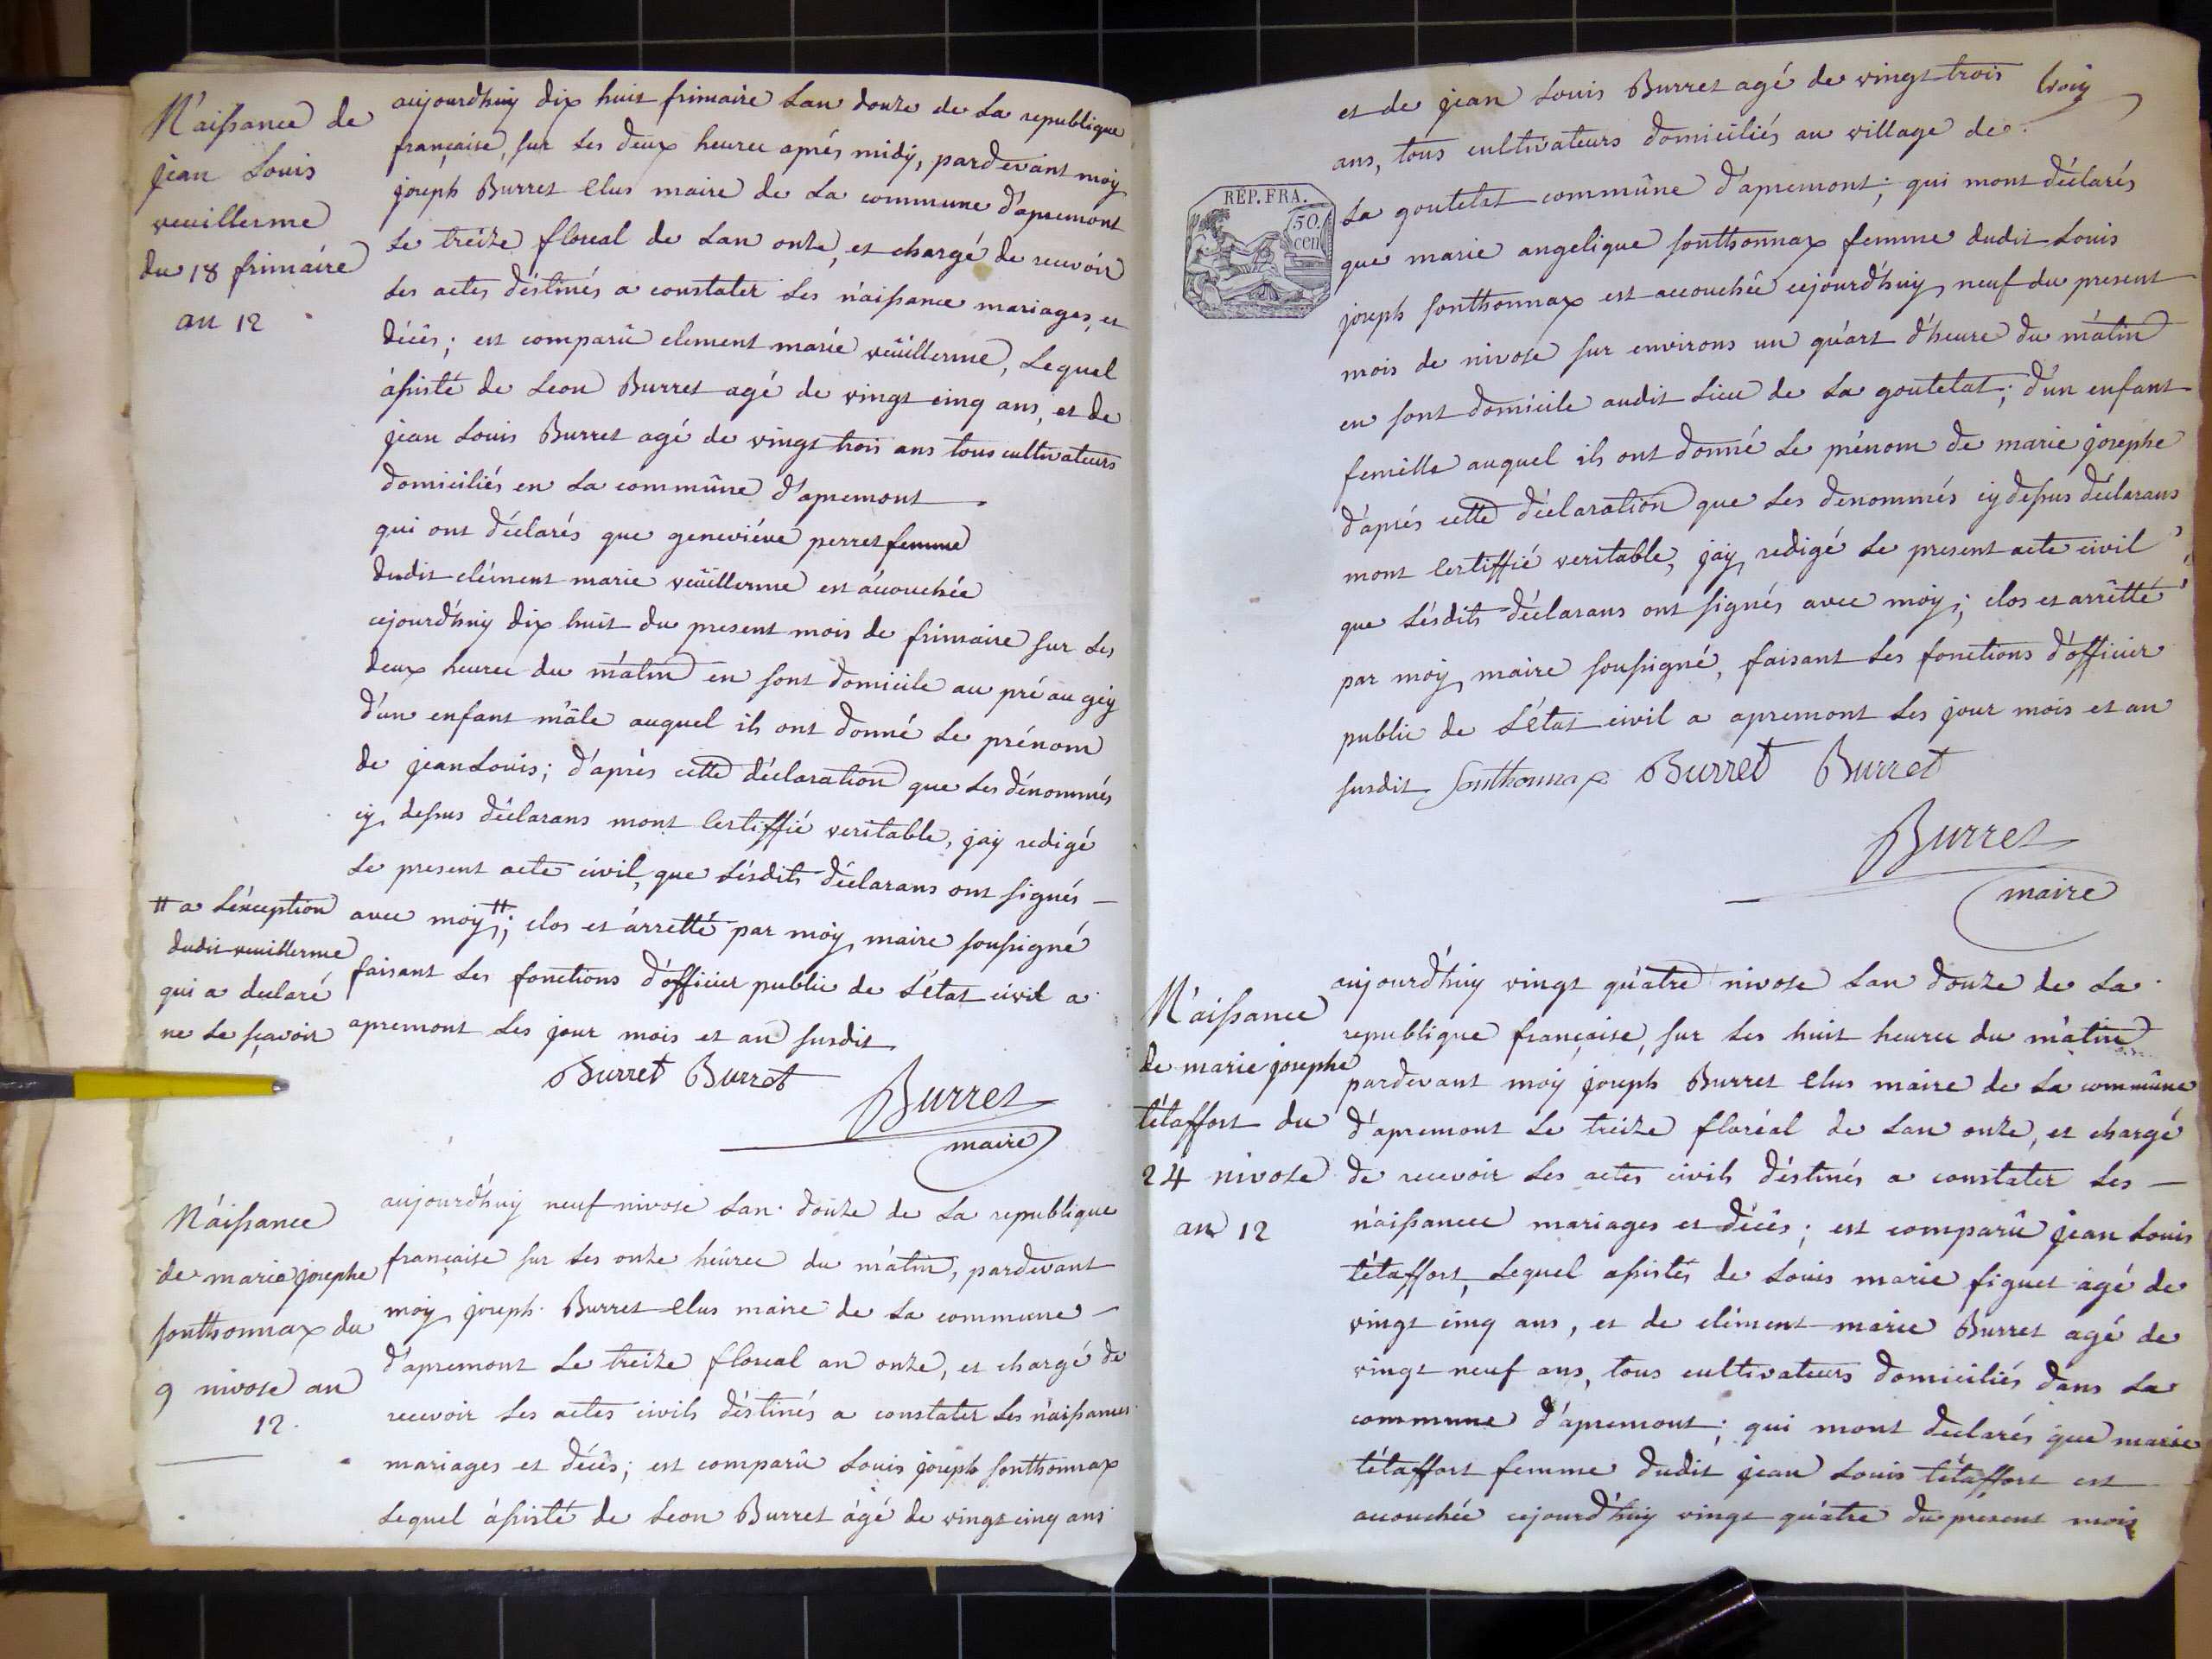 Naissance de
jean Louis
veuillerme
du 18 frimaire
an 12
aujourd'huy dix huit frimaire Lan douze de La republique
française, sur Les deux heures aprés midy, pardevant moy
joseph Burret Elus maire de La commune d'apremont
Le treize floreal de Lan onze, et chargé de recevoir
Les actes déstinés a constater Les naissance mariages, et
décês; est comparû clement marie veüillerme, Lequel
assisté de Leon Burret agé de vingt cinq ans, et de
jean Louis Burret agé de vingt trois ans tous cultivateurs
domiciliés en La commûne d'apremont
qui ont déclarés que geneviéve perret femme
dudit clément marie veüillerme est accouchée
cejourd'huy dix huit du present mois de frimaire sur Les
deux heures du matin en sont domicile au pré au gey
d'un enfant mâle auquel ils ont donné Le prénom
de jean Louis; d'après cette déclaration que Les dénommés
cy dessus déclarans mont Certiffié veritable, jay redigé
Le present acte civil, que Lésdits déclarans ont signés
avec moy #; clos et arretté par moy maire soussigné
faisant Les fonctions d'officier public de L'état civil a
apremont Les jour mois et an susdit
# a L'éxception
dudit veuillerme
qui a declaré
ne Le sçavoir
Burret Burret
Burret
maire
Naissance
de marie josephe
sonthonnax du
9 nivose an
12.
aujourd'huy neuf nivose Lan douze de La republique
française sur Les onze heures du matin, pardevant
moy joseph Burret Elus maire de La commune
d'apremont Le treize floreal an onze, et chargé de
recevoir Les actes civils déstinés a constater Les naissances
mariages et décês; est comparû Louis joseph sonthonnax
Lequel assisté de Leon Burret agé de vingt cinq ans
et de jean Louis Burret agé de vingt trois
ans, tous cultivateurs domiciliés au village de
REP. FRA.
50
cen
La goutelat commûne d'apremont; qui mont déclarés
que marie angelique sonthonnax femme dudit Louis
joseph sonthonnax est accouchée cejourd'huy neuf du present
mois de nivose sur environs un quart d'heure du matin
en sont domicile audit Lieu de La goutelat; d'un enfant
femelle auquel ils ont donné Le prénom de marie josephe
d'aprés cette déclaration que Les denommés cy dessus déclarans
mont Certiffié veritable, jay redigé Le present acte civil
que Lésdits déclarans ont signés avec moy; clos et arrêtté
par moy maire soussigné, faisant Les fonctions d'officier
public de L'état civil a apremont Les jour mois et an
susdit Sonthonnax Burret Burret
Burret
maire
Naissance
de marie josephe
tétaffort du
24 nivose
an 12
aujourd'huy vingt quatre nivose Lan douze de La
republique française, sur Les huit heures du matin
pardevant moy joseph Burret Elus maire de La commûne
d'apremont Le treize floréal de Lan onze, et chargé
de recevoir Les actes civils déstinés a constater Les
naissances mariages et décês; est comparû jean Louis
tétaffort, Lequel assistés de Louis marie figuet agé de
vingt cinq ans, et de clément marie Burret agé de
vingt neuf ans, tous cultivateurs domiciliés dans La
commune d'apremont; qui mont declarés que marie
tétaffort femme dudit jean Louis tétaffort est
accouchée cejourd'huy vingt quatre du présent mois